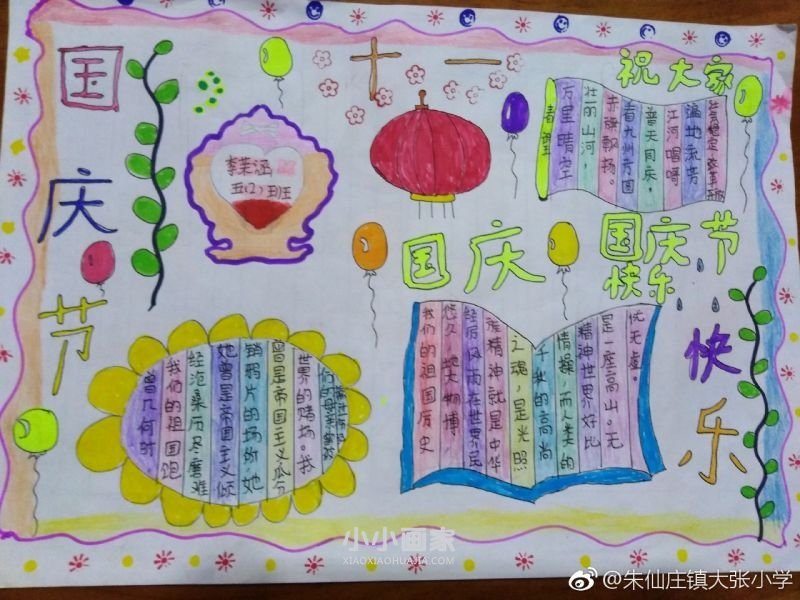 国庆节
十一
祝大家
李茉涵
五(2)班
万里晴空
壮丽山河,
赤旗飘扬。
看九州方圆
普天同庆,
江河唱呀
遍地流芳
国庆
国庆节
快乐
快乐
曾几何时
我们的祖国跑
经沧桑历尽磨难
她曾是帝国主义倾
销鸦片的场所她
曾是帝国主义瓜分
世界的赌场。我
我们的祖国历史
悠久,地大物博,
经历风雨在世界民
族精神就是中华
之魂,是光照
千秋的高尚
情操,而人类的
精神世界好比
是一座高山。无
忧无虑。
小小画家
XIAOXIAOHUAJIA.COM
@朱仙庄镇大张小学